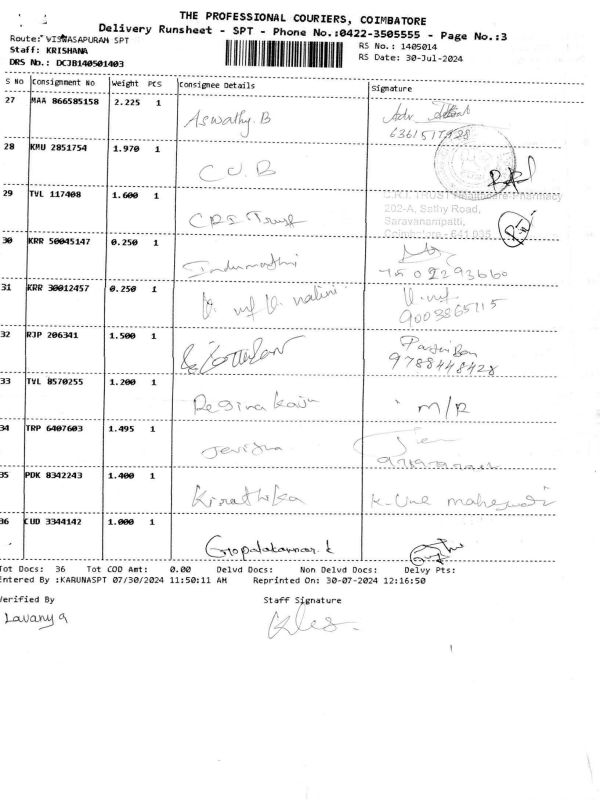 THE PROFESSIONAL COURIERS, COIMBATORE
Delivery Runsheet - SPT - Phone No.:0422-3505555 - Page No.:3
Route: VISWASAPURAM SPT
RS No.: 1405014
Staff: KRISHANA
RS Date: 30-Jul-2024
DRS No.: DCJB140501403
S No Consignment No Weight PCS Consignee Details Signature
27 MAA 866585158 2.225 1
Aswathy.B
28 KMU 2851754 1.970 1
C U. B
29 TVL 117408 1.600 1
C.R.I. TRUST Healthcare-Pharmacy
202-A, Sathy Road,
Saravanampatti,
Coimbatore - 641 035
CRI Trust
30 KRR 50045147 0.250 1
Indumathi
31 KRR 30012457 0.250 1
nalini
9003865115
32 RJP 206341 1.500 1
9788448428
33 TVL 8570255 1.200 1
Regina
M/R
34 TRP 6407603 1.495 1
35 PDK 8342243 1.400 1
Kirathika
36 CUD 3344142 1.000 1
Gopalakannan.k
Tot Docs: 36 Tot COD Amt: 0.00 Delvd Docs: Non Delvd Docs: Delvy Pts:
Entered By :KARUNASPT 07/30/2024 11:50:11 AM Reprinted On: 30-07-2024 12:16:50
Verified By Staff Signature
Lavanya